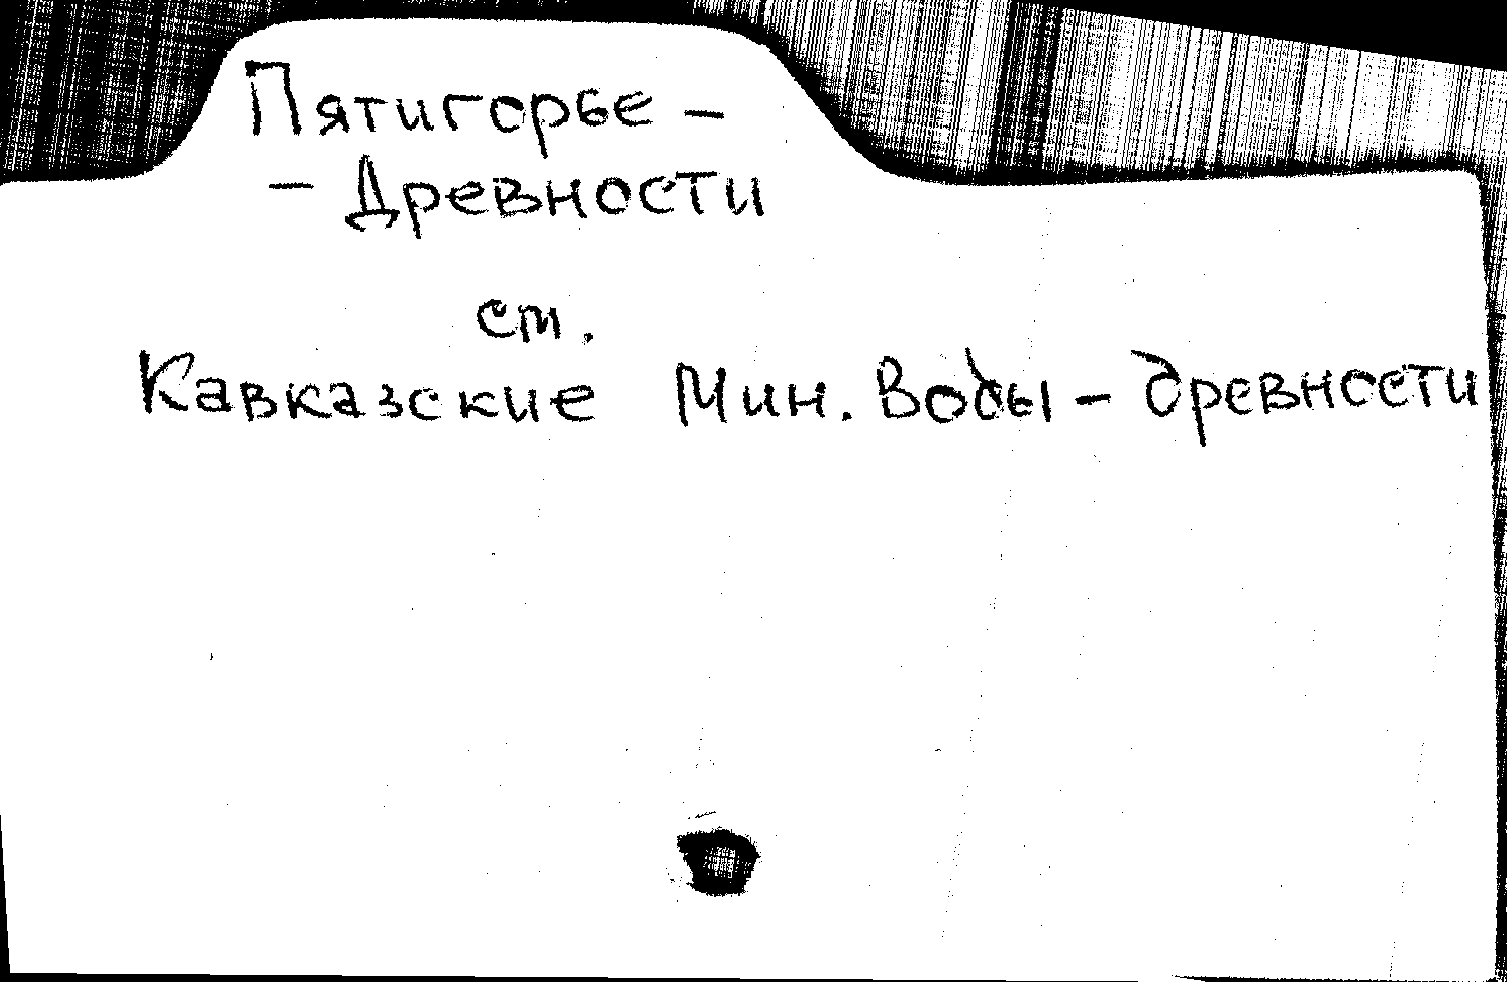 Пятигорье –
– Древности
ст.
Кавказские Мин. Воды – древности